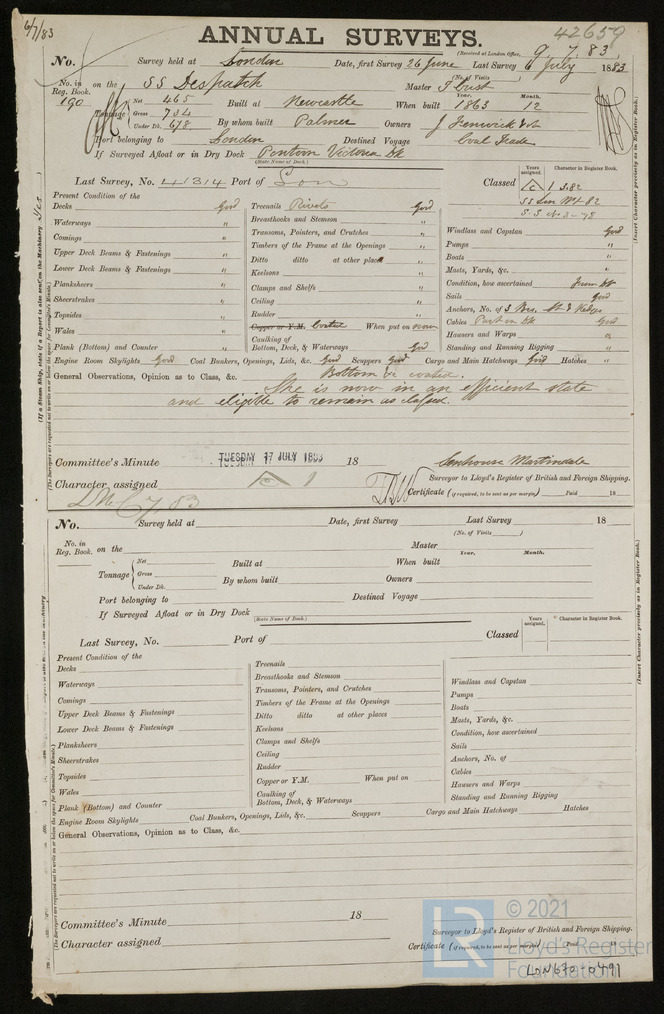 6/7/83
ANNUAL SURVEYS.
42659
(Received at London Office, 9.7.83)
No. Survey held at London Date, first Survey 26 June Last Survey 6 July 1883
(No. of Visits )
No. in Reg. Book. 190 on the SS Despatch Master
Tonnage Net 465 Gross 734 Under Dk. 678 Built at Newcastle When built Year. 1863 Month. 12
By whom built Palmer Owners J Fenwick &
Port belonging to London Destined Voyage Coal Trade
If Surveyed Afloat or in Dry Dock Pontoon Victoria Dk
(State Name of Dock.)
Last Survey, No. 4314 Port of Lon Classed Years assigned. Character in Register Book.
Present Condition of the
Decks Good
Waterways "
Comings "
Upper Deck Beams & Fastenings "
Lower Deck Beams & Fastenings "
Planksheers "
Sheerstrakes "
Topsides "
Wales "
Plank (Bottom) and Counter "
Treenails Rivets Good
Breasthooks and Stemson "
Transoms, Pointers, and Crutches "
Timbers of the Frame at the Openings "
Ditto ditto at other places "
Keelsons "
Clamps and Shelfs "
Ceiling "
Rudder "
Copper or Y.M. Coated When put on now
Caulking of Bottom, Deck, & Waterways Good
Windlass and Capstan Good
Pumps "
Boats "
Masts, Yards, &c. "
Condition, how ascertained from Dk
Sails Good
Anchors, No. of 3 St & Kedge
Cables Part in Dk Good
Hawsers and Warps "
Standing and Running Rigging "
Engine Room Skylights Good Coal Bunkers, Openings, Lids, &c. Good Scuppers Good Cargo and Main Hatchways Good Hatches "
General Observations, Opinion as to Class, &c. Bottom coated.
She is now in an efficient state
and eligible to remain as classed.
Committee's Minute TUESDAY 17 JULY 1883 18
Martindale
Surveyor to Lloyd's Register of British and Foreign Shipping.
Character assigned
Certificate (if required, to be sent as per margin) Paid 18
(If a Steam Ship, state if a Report is also sent on the Machinery Yes )
(The Surveyors are requested not to write on or below the space for Committee's Minute.)
(Insert Character precisely as in Register Book.)
No. Survey held at Date, first Survey Last Survey 18
(No. of Visits )
No. in Reg. Book. on the Master
Tonnage Net Gross Under Dk. Built at When built Year. Month.
By whom built Owners
Port belonging to Destined Voyage
If Surveyed Afloat or in Dry Dock
(State Name of Dock.)
Last Survey, No. Port of Classed Years assigned. Character in Register Book.
Present Condition of the
Decks
Waterways
Comings
Upper Deck Beams & Fastenings
Lower Deck Beams & Fastenings
Planksheers
Sheerstrakes
Topsides
Wales
Plank (Bottom) and Counter
Treenails
Breasthooks and Stemson
Transoms, Pointers, and Crutches
Timbers of the Frame at the Openings
Ditto ditto at other places
Keelsons
Clamps and Shelfs
Ceiling
Rudder
Copper or Y.M. When put on
Caulking of Bottom, Deck, & Waterways
Windlass and Capstan
Pumps
Boats
Masts, Yards, &c.
Condition, how ascertained
Sails
Anchors, No. of
Cables
Hawsers and Warps
Standing and Running Rigging
Engine Room Skylights Coal Bunkers, Openings, Lids, &c. Scuppers Cargo and Main Hatchways Hatches
General Observations, Opinion as to Class, &c.
Committee's Minute 18
Surveyor to Lloyd's Register of British and Foreign Shipping.
Character assigned
Certificate (if required, to be sent as per margin) Paid 18
(The Surveyors are requested not to write on or below the space for Committee's Minute.)
(Insert Character precisely as in Register Book.)
LR © 2021
Lloyd's Register
Foundation
LON670-0491